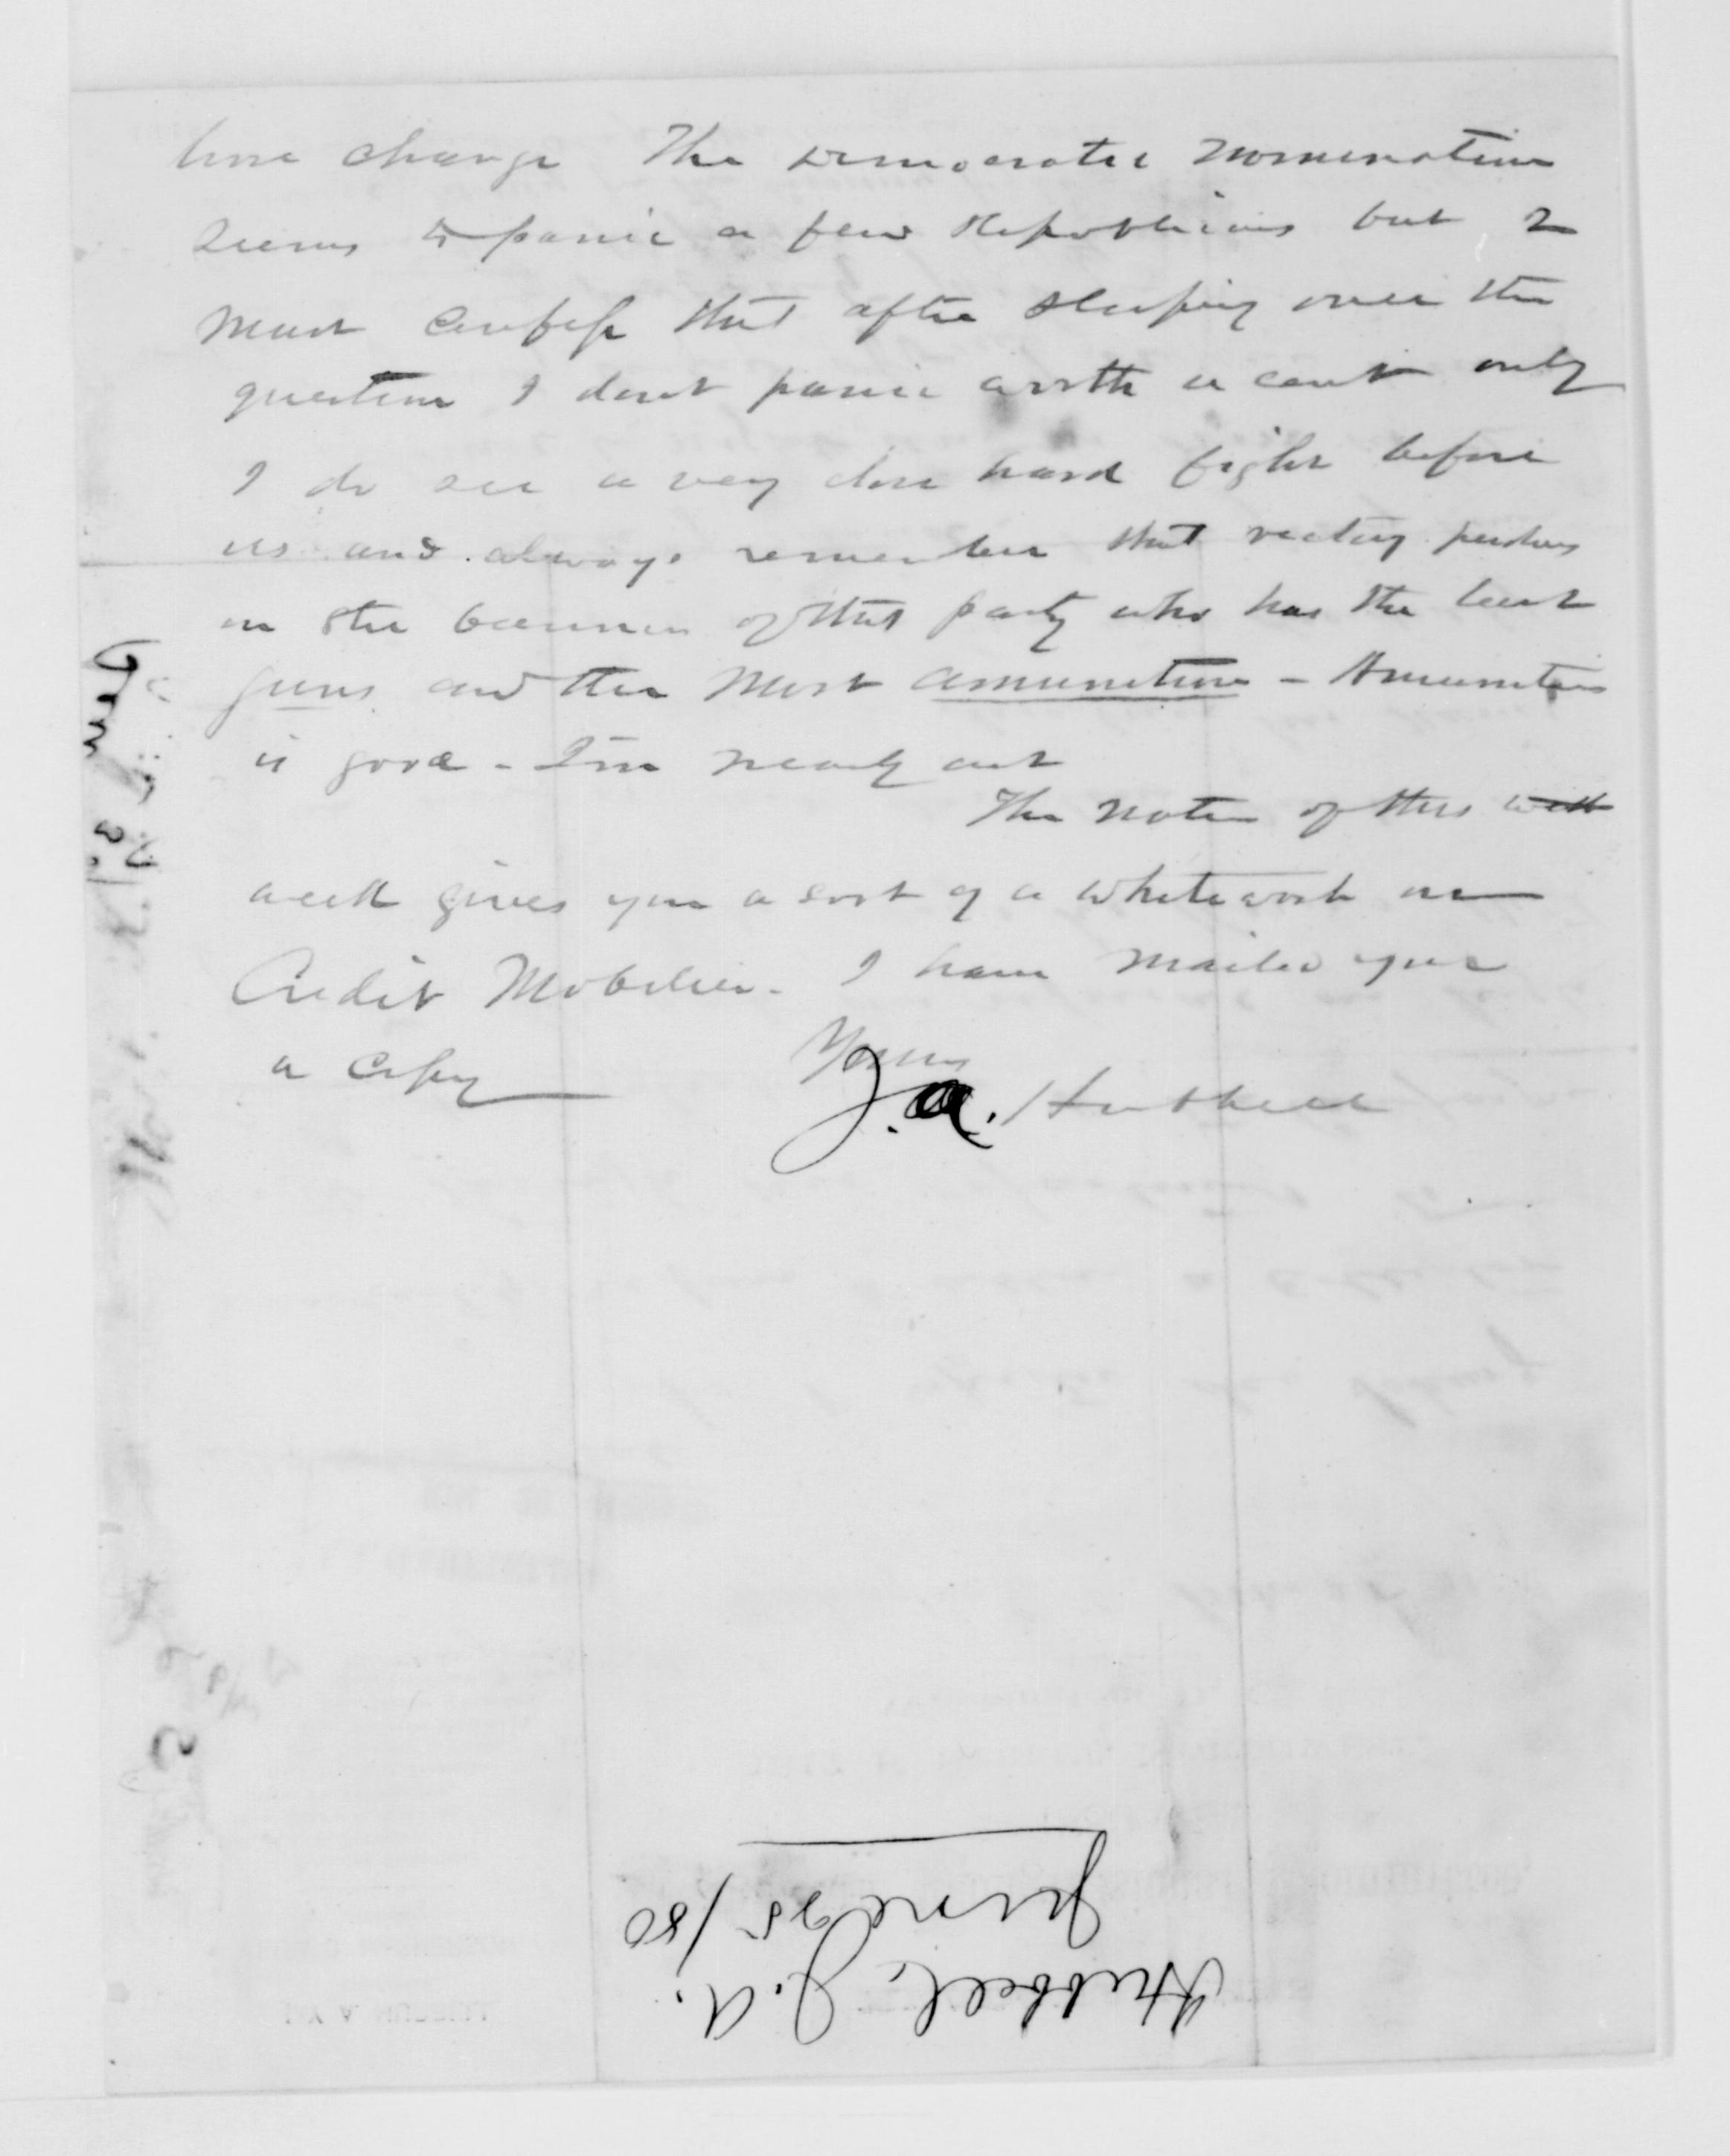 have change The Democratic nomination
seems to panic a few Republicans but I
must confess that after sleeping over the
question I dont panic worth a cent only
I do see a very close hard fight before
us and always remember that victory perches
on the banner of that party who has the best
guns and the most amunition - Amunition
is good - I'm nearly out
The Nation of this
week gives you a sort of a whitewash on
Credit Mobilier. I have mailed you
a copy
Yours
J.A. Hubbell
Hubbell, J.A.
June 25/80